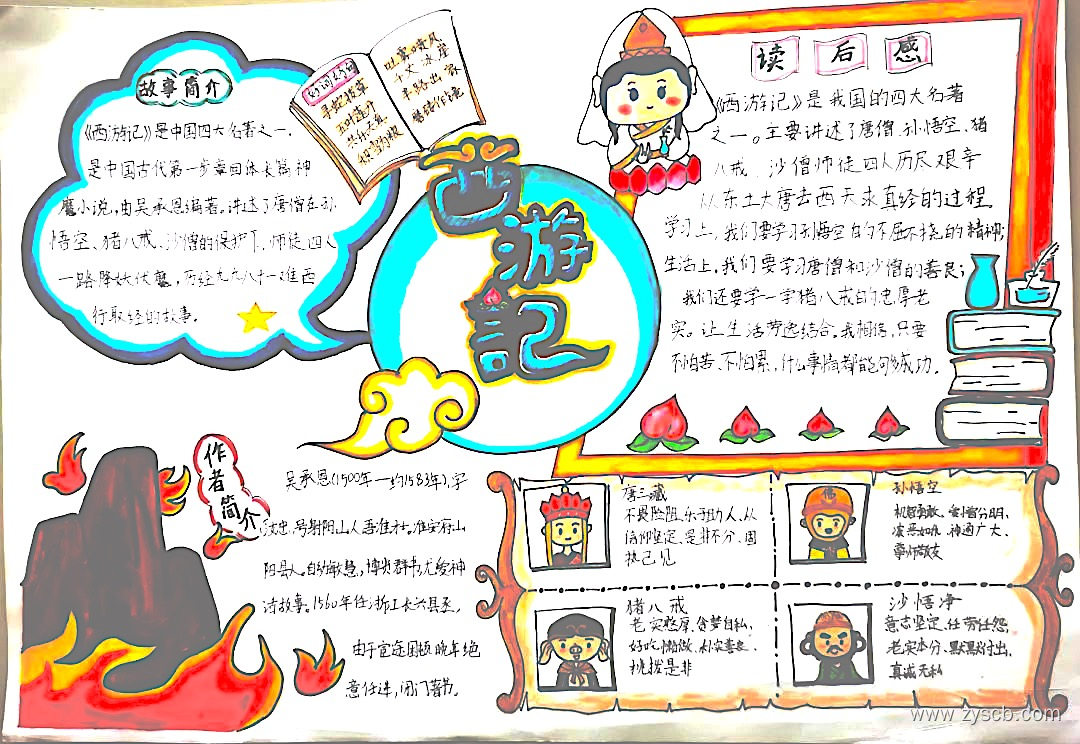 故事简介
《西游记》是中国四大名著之一.
是中国古代第一步章回体长篇神
魔小说,由吴承恩编著。讲述了唐僧在孙
悟空、猪八戒、沙僧的保护下,师徒四人
一路降妖伏魔,历经九九八十一难西
行取经的故事。
好词好句
西游記
读后感
《西游记》是我国的四大名著
之一。主要讲述了唐僧、孙悟空、猪
八戒、沙僧师徒四人历尽艰辛
从东土大唐去西天求真经的过程
学习上,我们要学习孙悟空的不屈不挠的精神;
生活上,我们要学习唐僧和沙僧的善良;
我们还要学一学猪八戒的忠厚老
实。让生活劳逸结合。我相信,只要
不怕苦、不怕累,什么事情都能可够成功。
作者简介
吴承恩(1500年一约1583年),字
汝忠,号射阳山人。淮安府山
阳县人。自幼敏慧,博览群书,尤爱神
话故事。1560年任浙江长兴县丞。
由于宦途困顿,晚年绝
意仕进,闭门著书。
唐三藏
不畏险阻,乐于助人、从
信仰坚定、是非不分、固
执己见
孙悟空
机智勇敢、爱憎分明、
嫉恶如仇、神通广大、
尊师敬友
猪八戒
老实憨厚、贪婪自私、
好吃懒做、
挑拨是非
沙悟净
意志坚定、任劳任怨,
老实本分、默默付出,
真诚无私
www.zyscb.com